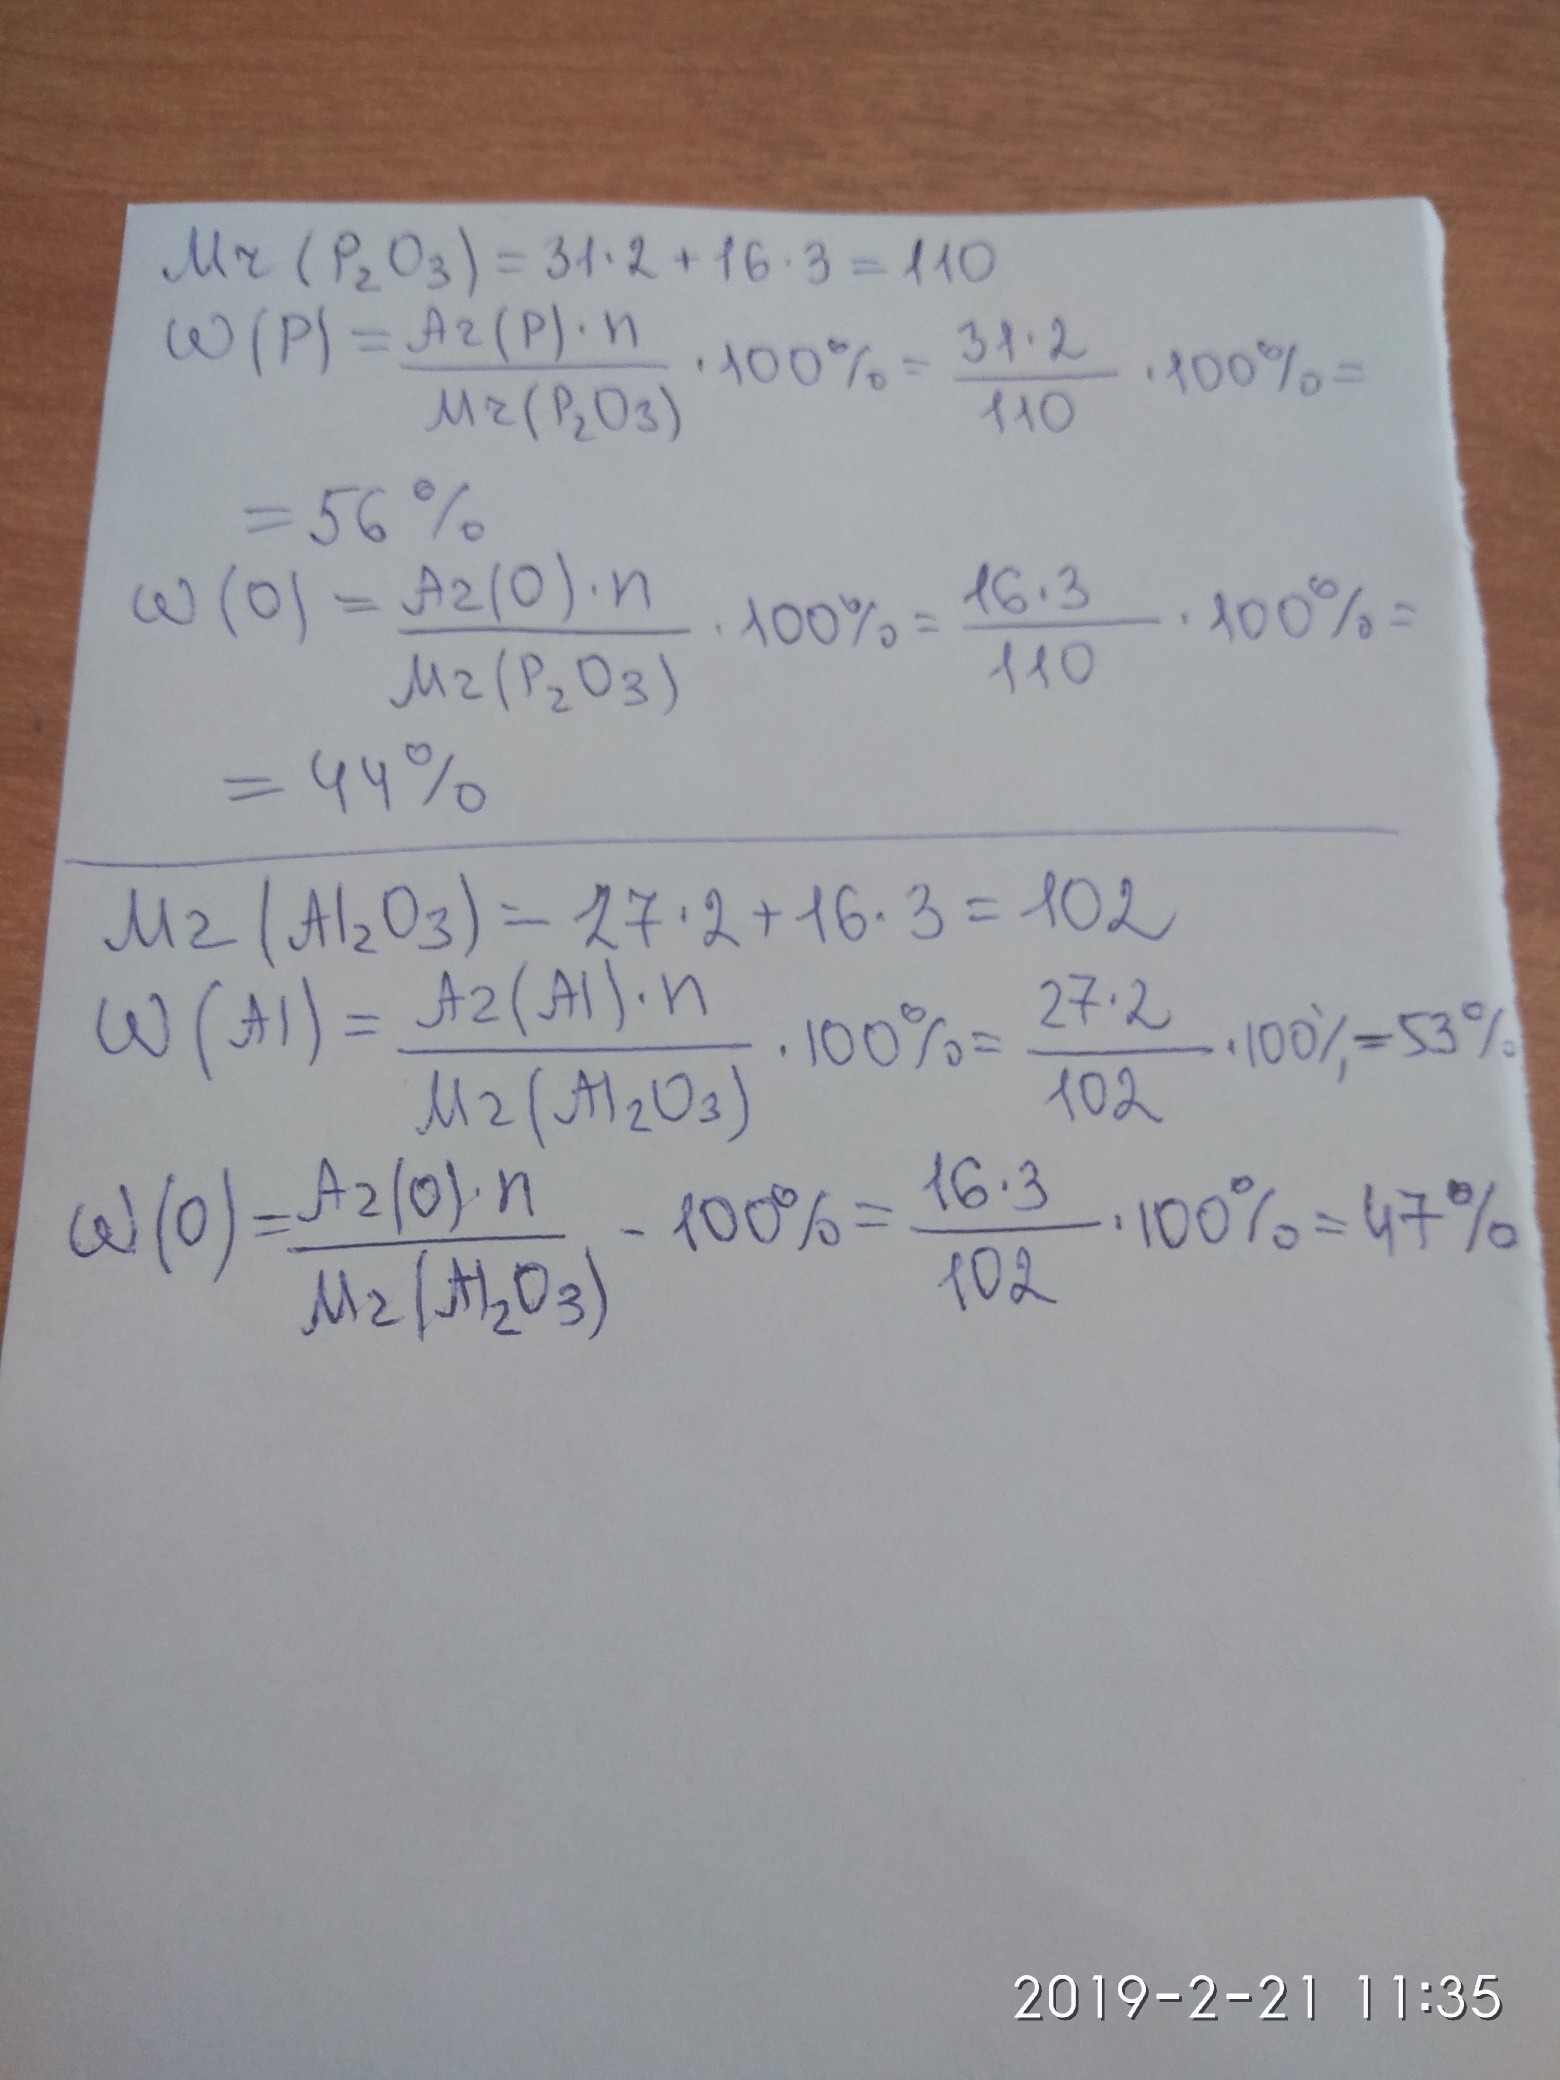 Mr (P₂O₃) = 31·2 + 16·3 = 110
ω(P) = Ar(P)·n / Mr(P₂O₃) · 100% = 31·2 / 110 · 100% =
= 56%
ω(O) = Ar(O)·n / Mr(P₂O₃) · 100% = 16·3 / 110 · 100% =
= 44%
Mr (Al₂O₃) = 27·2 + 16·3 = 102
ω(Al) = Ar(Al)·n / Mr(Al₂O₃) · 100% = 27·2 / 102 · 100% = 53%
ω(O) = Ar(O)·n / Mr(Al₂O₃) - 100% = 16·3 / 102 · 100% = 47%
2019-2-21 11:35